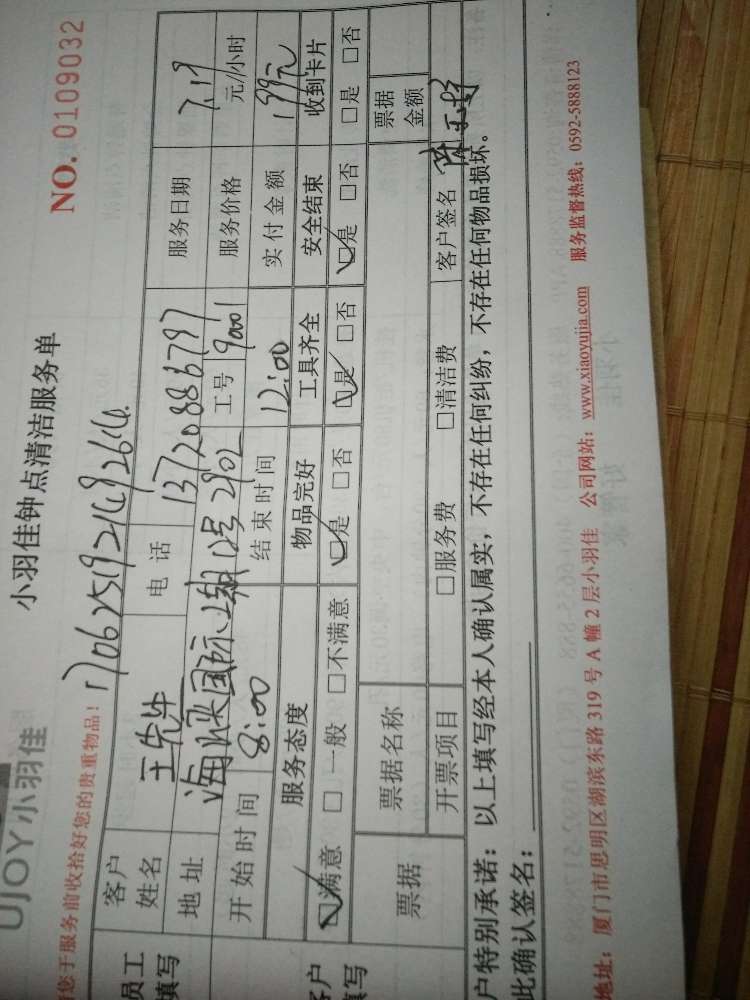 UJOY小羽佳
小羽佳钟点清洁服务单
NO. 0109032
您于服务前收拾好您的贵重物品!
员工
填写
客户
姓名
王先生
电话
13720886797
服务日期
7.19
地址
工号
9001
服务价格
元/小时
开始时间
8:00
结束时间
12:00
实付金额
199元
客户
填写
服务态度
物品完好
工具齐全
安全结束
收到卡片
☑满意 □一般 □不满意
☑是 □否
☑是 □否
☑是 □否
□是 □否
票据
票据名称
票据
金额
开票项目
□服务费
□清洁费
客户签名
户特别承诺:以上填写经本人确认属实,不存在任何纠纷,不存在任何物品损坏。
此确认签名:
地址:厦门市思明区湖滨东路 319 号 A 幢 2 层小羽佳 公司网站:www.xiaoyujia.com 服务监督热线:0592-5888123